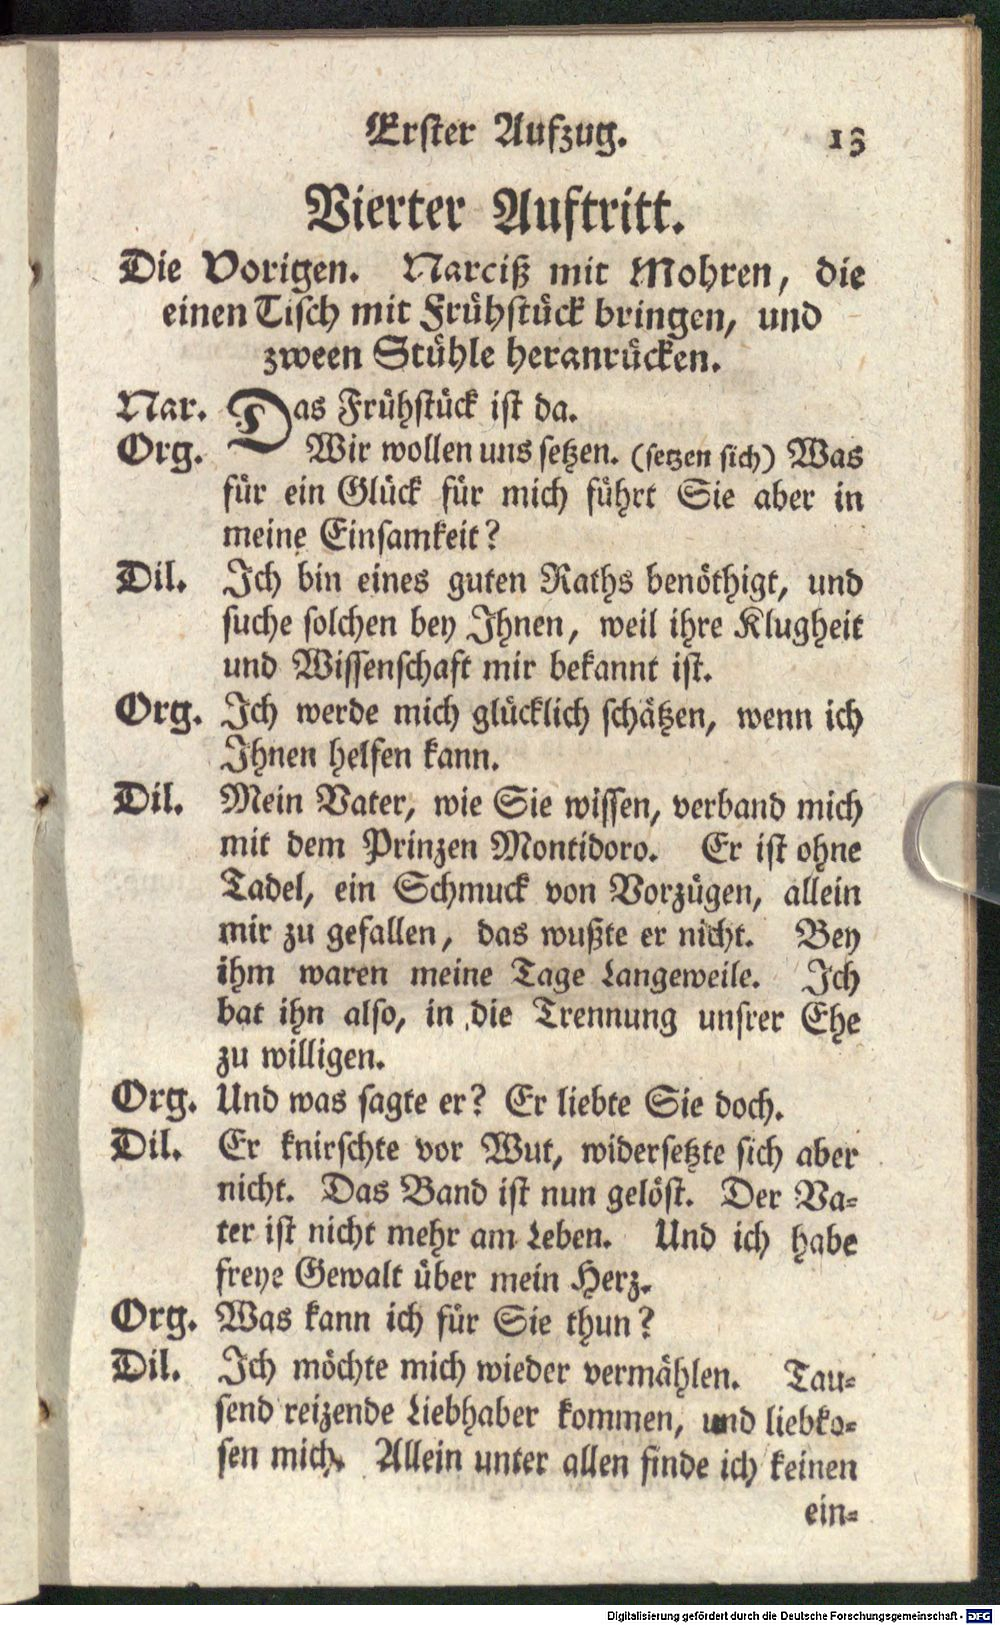 Erster Aufzug. 13
Vierter Auftritt.
Die Vorigen. Narciß mit Mohren, die
einen Tisch mit Frühstück bringen, und
zween Stühle heranrücken.
Nar. Das Frühstück ist da.
Org. Wir wollen uns setzen. (setzen sich) Was
für ein Glück für mich führt Sie aber in
meine Einsamkeit?
Dil. Ich bin eines guten Raths benöthigt, und
suche solchen bey Ihnen, weil ihre Klugheit
und Wissenschaft mir bekannt ist.
Org. Ich werde mich glücklich schätzen, wenn ich
Ihnen helfen kann.
Dil. Mein Vater, wie Sie wissen, verband mich
mit dem Prinzen Montidoro. Er ist ohne
Tadel, ein Schmuck von Vorzügen, allein
mir zu gefallen, das wußte er nicht. Bey
ihm waren meine Tage Langeweile. Ich
bat ihn also, in die Trennung unsrer Ehe
zu willigen.
Org. Und was sagte er? Er liebte Sie doch.
Dil. Er knirschte vor Wut, widersetzte sich aber
nicht. Das Band ist nun gelöst. Der Va-
ter ist nicht mehr am Leben. Und ich habe
freye Gewalt über mein Herz.
Org. Was kann ich für Sie thun?
Dil. Ich möchte mich wieder vermählen. Tau-
send reizende Liebhaber kommen, und liebko-
sen mich. Allein unter allen finde ich keinen
ein-
Digitalisierung gefördert durch die Deutsche Forschungsgemeinschaft - DFG